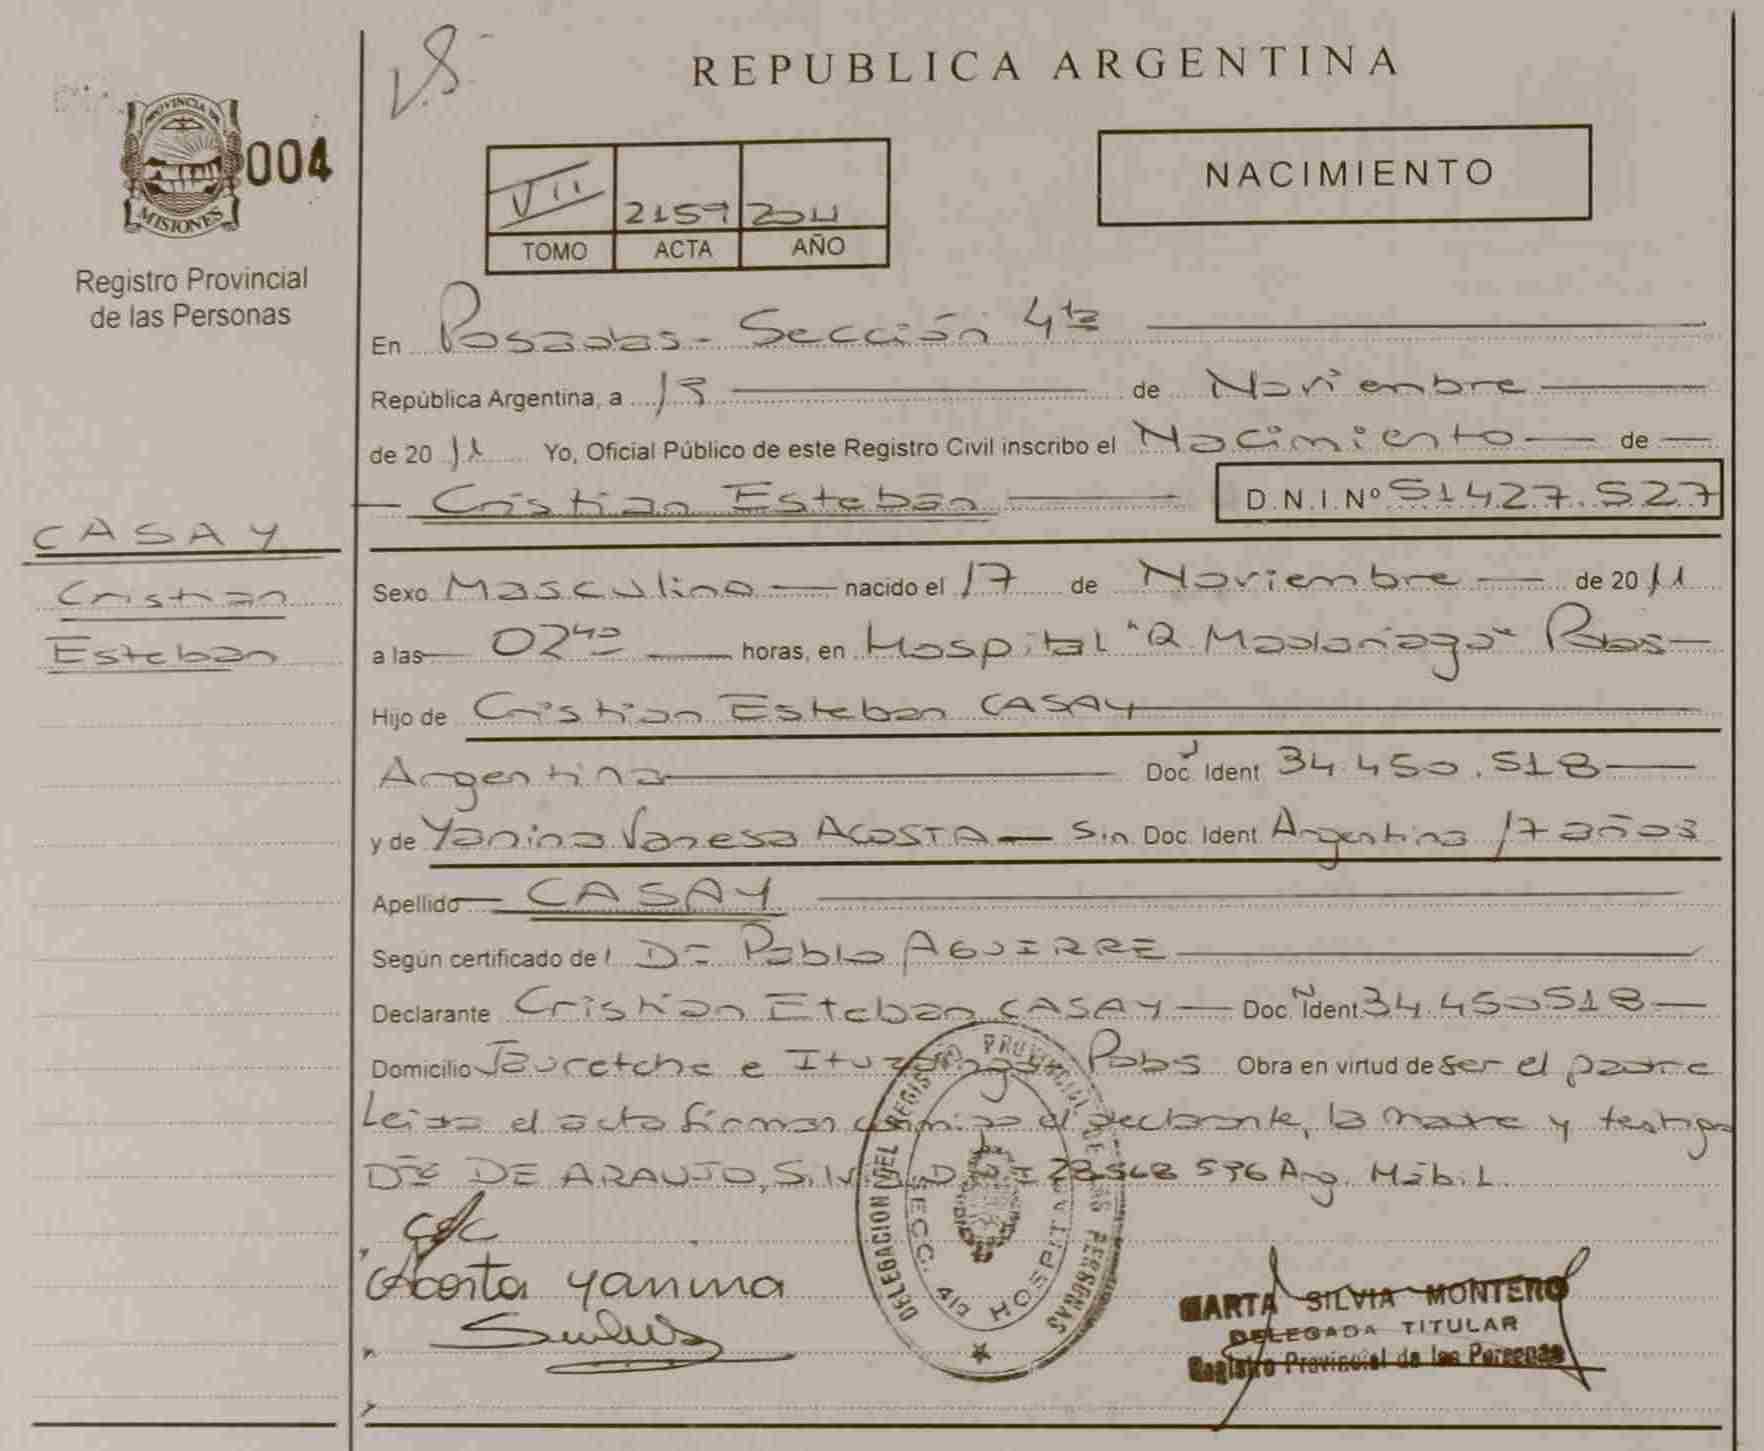 V.S.
REPUBLICA ARGENTINA
PROVINCIA DE
MISIONES
004
NACIMIENTO
VII 2159 2011
TOMO ACTA AÑO
Registro Provincial
de las Personas
En Posadas - Sección 4ta
República Argentina, a 1 de Noviembre
de 20 11 Yo, Oficial Público de este Registro Civil inscribo el Nacimiento de
Cristian Esteban D.N.I.Nº 51427.527
CASAY
Cristian
Esteban
Sexo Masculino nacido el 17 de Noviembre de 20 11
a las 02 40 horas, en Hospital "R. Madariaga" Pdas
Hijo de Cristian Esteban CASAY
Argentina Doc. Ident 34.450.518
y de Yanina Vanesa ACOSTA Sin Doc. Ident Argentina 17 años
Apellido CASAY
Según certificado del Dr Pablo AGUIRRE
Declarante Cristian Eteban CASAY Doc. Ident 34.450518
Domicilio Jauretche e Ituzaingó Pdas Obra en virtud de ser el padre
Leida el acta firman conmigo el declarante, la madre y testigo
Dña DE ARAUJO, Silvia D.N.I 28568 596 Arg. Hábil
Acosta Yanina
DELEGACION DEL REGISTRO PROVINCIAL DE LAS PERSONAS
SECC. 4ta HOSPITAL
MARTA SILVIA MONTERO
DELEGADA TITULAR
Registro Provincial de las Personas